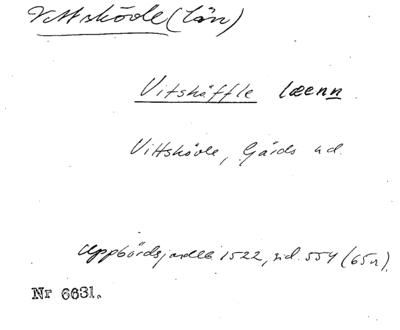 Vittskövle (län)
Vitskäffle læenn
Vittskövle, Gärds hd.
Uppbördsjordeb. 1522, sid. 554 (65n).
Nr 6631.